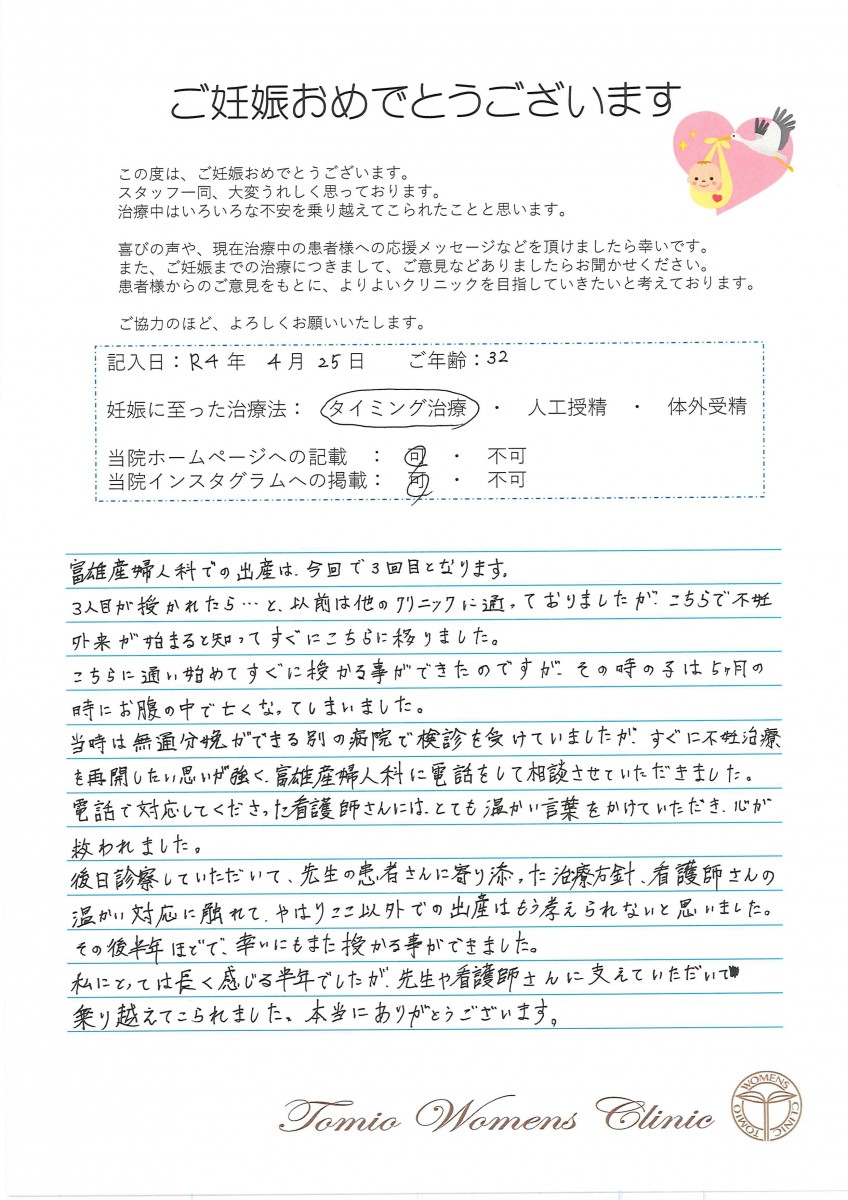 ご妊娠おめでとうございます
この度は、ご妊娠おめでとうございます。
スタッフ一同、大変うれしく思っております。
治療中はいろいろな不安を乗り越えてこられたことと思います。
喜びの声や、現在治療中の患者様への応援メッセージなどを頂けましたら幸いです。
また、ご妊娠までの治療につきまして、ご意見などありましたらお聞かせください。
患者様からのご意見をもとに、よりよいクリニックを目指していきたいと考えております。
ご協力のほど、よろしくお願いいたします。
記入日：R4年 4月 25日 ご年齢：32
妊娠に至った治療法： タイミング治療 ・ 人工授精 ・ 体外受精
当院ホームページへの記載 ： 可 ・ 不可
当院インスタグラムへの掲載： 可 ・ 不可
富雄産婦人科での出産は、今回で3回目となります。
3人目が授かれたら…と、以前は他のクリニックに通っておりましたが、こちらで不妊
外来が始まると知ってすぐにこちらに移りました。
こちらに通い始めてすぐに授かる事ができたのですが、その時の子は5ヶ月の
時にお腹の中で亡くなってしまいました。
当時は無通分娩ができる別の病院で検診を受けていましたが、すぐに不妊治療
を再開したい思いが強く、富雄産婦人科に電話をして相談させていただきました。
電話で対応してくださった看護師さんには、とても温かい言葉をかけていただき、心が
救われました。
後日診察していただいて、先生の患者さんに寄り添った治療方針、看護師さんの
温かい対応に触れて、やはりここ以外での出産はもう考えられないと思いました。
その後半年ほどで、幸いにもまた授かる事ができました。
私にとっては長く感じる半年でしたが、先生や看護師さんに支えていただいて
乗り越えてこられました。本当にありがとうございます。
Tomio Womens Clinic
TOMIO WOMENS CLINIC